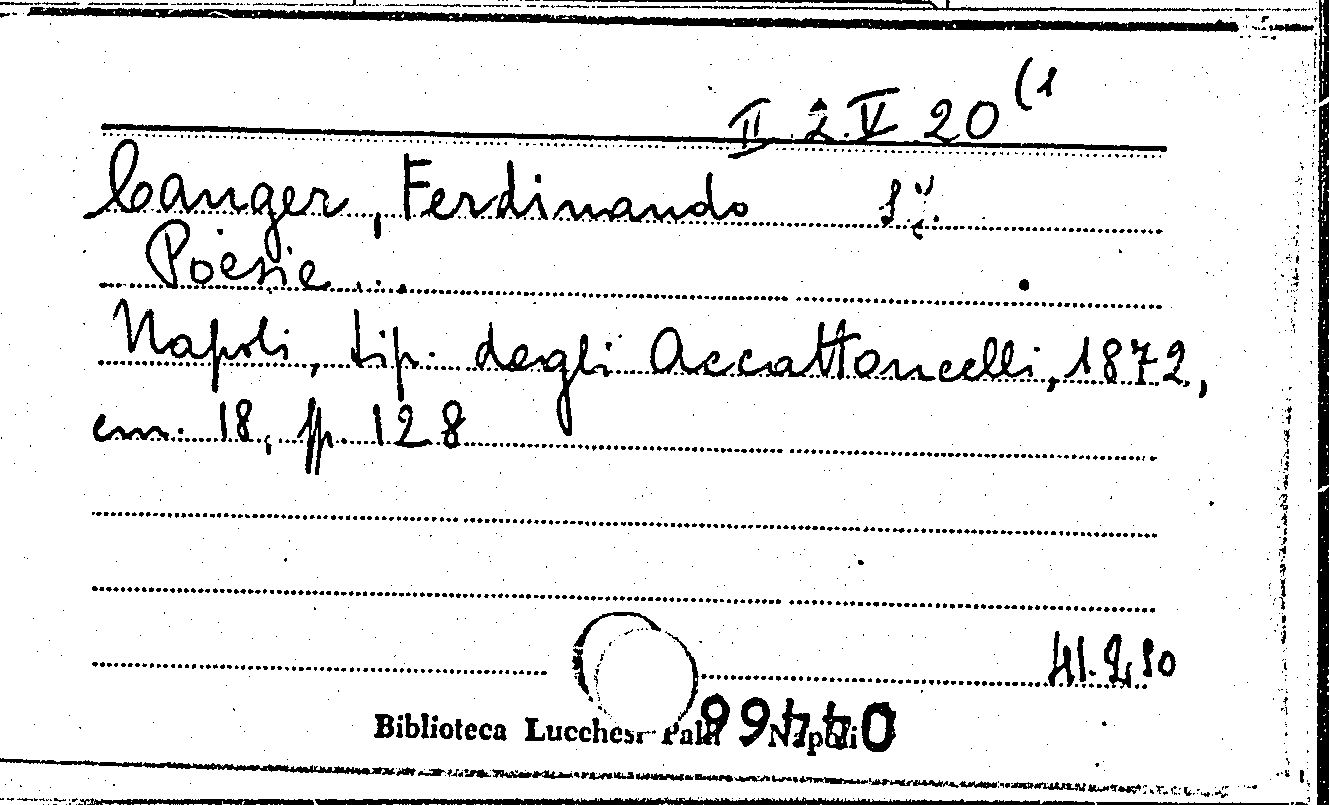 II 2.V 20 (1
Canger, Ferdinando
Poesie...
Napoli, tip. degli Accattoncelli, 1872,
cm. 18, pp. 128
Biblioteca Lucchesi Palli Napoli